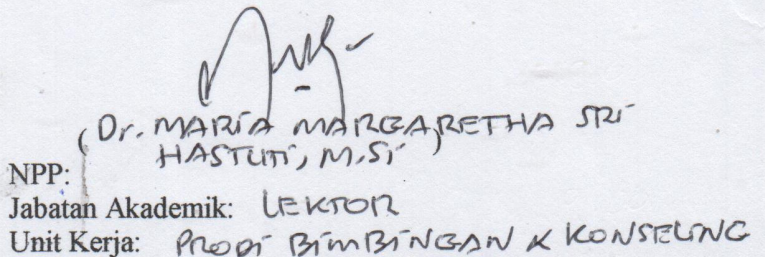 (Dr. MARIA MARGARETHA SRI
HASTUTI, M.Si)
NPP:
Jabatan Akademik: LEKTOR
Unit Kerja: PRODI BIMBINGAN & KONSELING